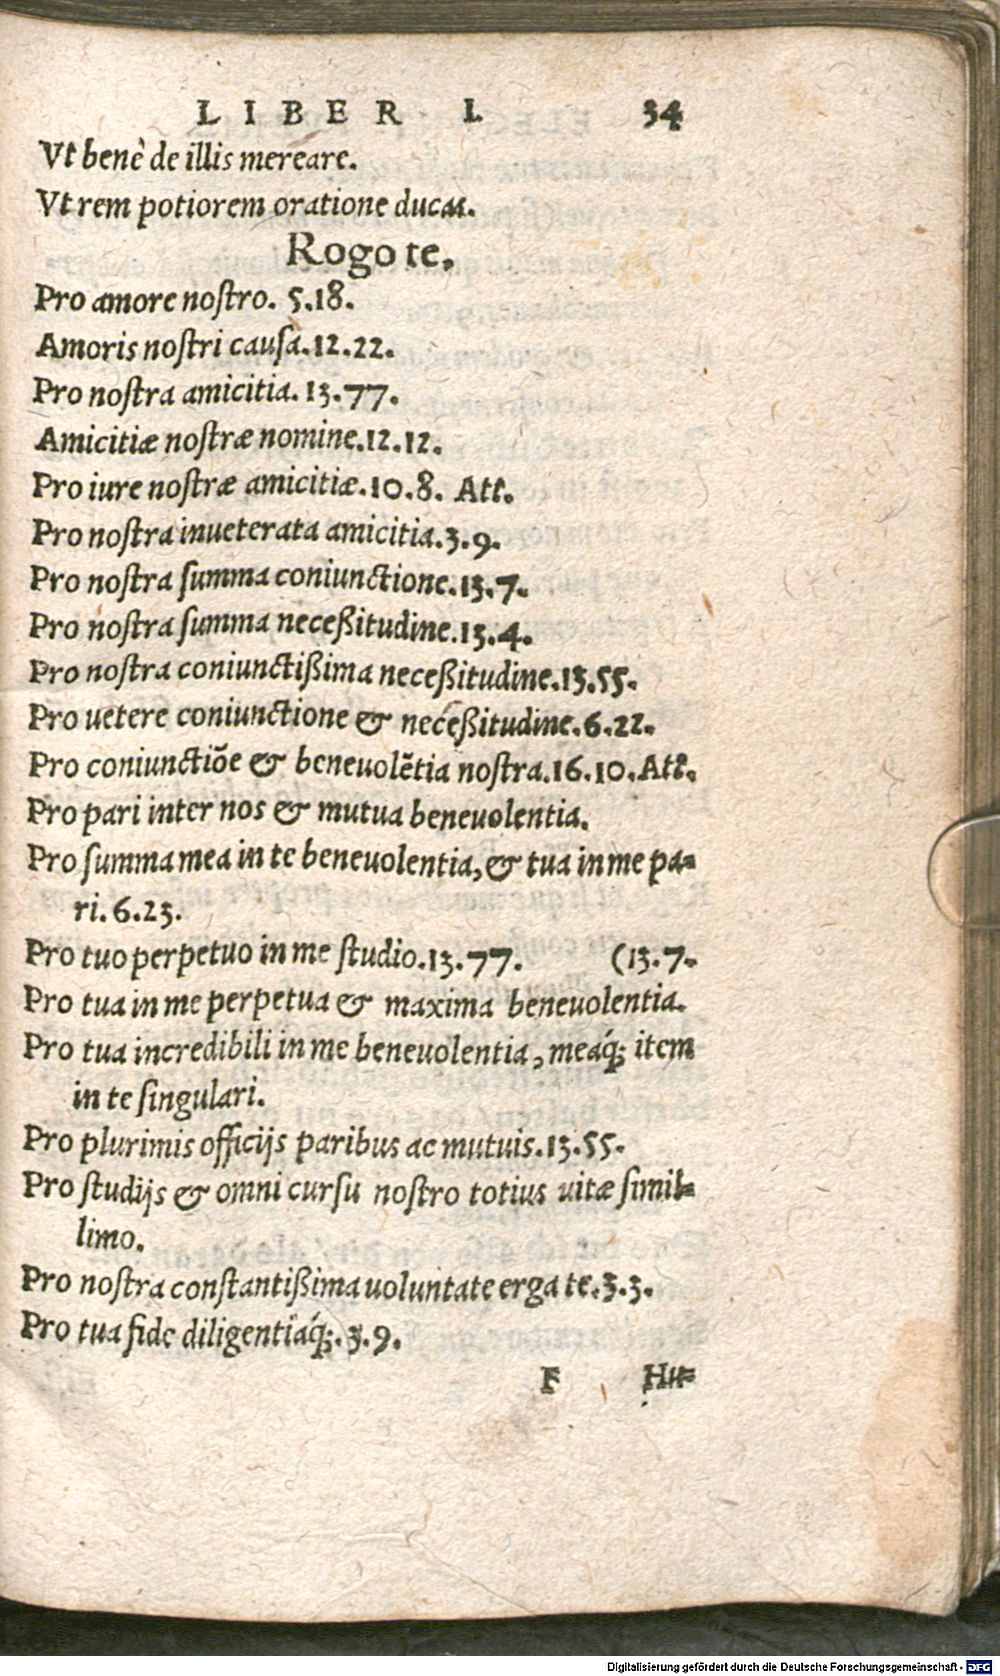 LIBER I. 34
Vt benè de illis mereare.
Vt rem potiorem oratione ducas.
Rogo te.
Pro amore nostro. 5.18.
Amoris nostri causa.12.22.
Pro nostra amicitia. 13.77.
Amicitiæ nostræ nomine.12.12.
Pro iure nostræ amicitiæ.10.8. Att.
Pro nostra inueterata amicitia.3.9.
Pro nostra summa coniunctione.13.7.
Pro nostra summa neceßitudine.13.4.
Pro nostra coniunctißima neceßitudine.13.55.
Pro uetere coniunctione & neceßitudine.6.22.
Pro coniunctiõe & beneuolẽtia nostra.16.10.Att.
Pro pari inter nos & mutua beneuolentia.
Pro summa mea in te beneuolentia, & tua in me pa-
ri. 6.23.
Pro tuo perpetuo in me studio.13.77. (13.7.
Pro tua in me perpetua & maxima beneuolentia.
Pro tua incredibili in me beneuolentia, meaq́; item
in te singulari.
Pro plurimis officijs paribus ac mutuis.13.55.
Pro studijs & omni cursu nostro totius uitæ simil-
limo.
Pro nostra constantißima uoluntate erga te.3.3.
Pro tua fide diligentiaq́;.3.9.
F Hu-
Digitalisierung gefördert durch die Deutsche Forschungsgemeinschaft - DFG